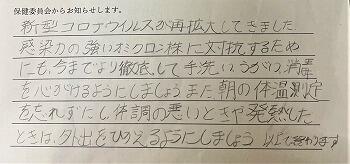 保健委員会からお知らせします。
新型コロナウイルスが再拡大してきました。
感染力の強いオミクロン株に対抗するため
にも、今までより徹底して手洗い、うがい、消毒
を心がけるようにしましょう。また、朝の体温測定
を忘れずにし、体調の悪いときや発熱した
ときは、外出をひかえるようにしましょう。以上で終わります